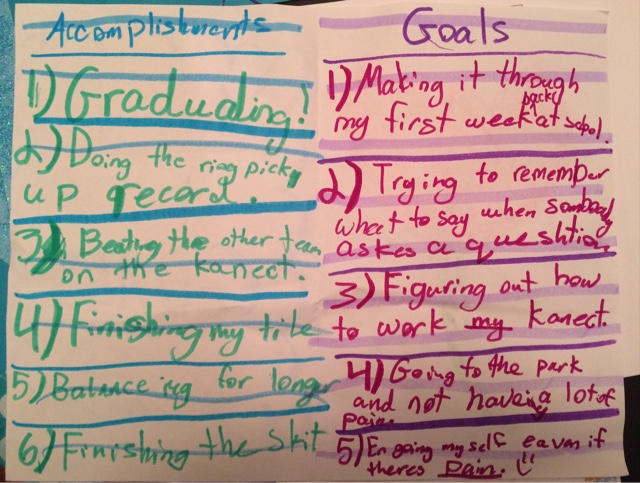 Accomplishments
1) Graduating!
2) Doing the ring pick
up record.
3) Beating the other team
on the kanect.
4) Finishing my tile
5) Balanceing for longer
6) Finishing the skit
Goals
1) Making it through
my first week back at school.
2) Trying to remember
what to say when somebody
askes a queshtion
3) Figuring out how
to work my kanect.
4) Going to the park
and not haveing a lot of
pain.
5) En going my self eaven if
theres pain. :)